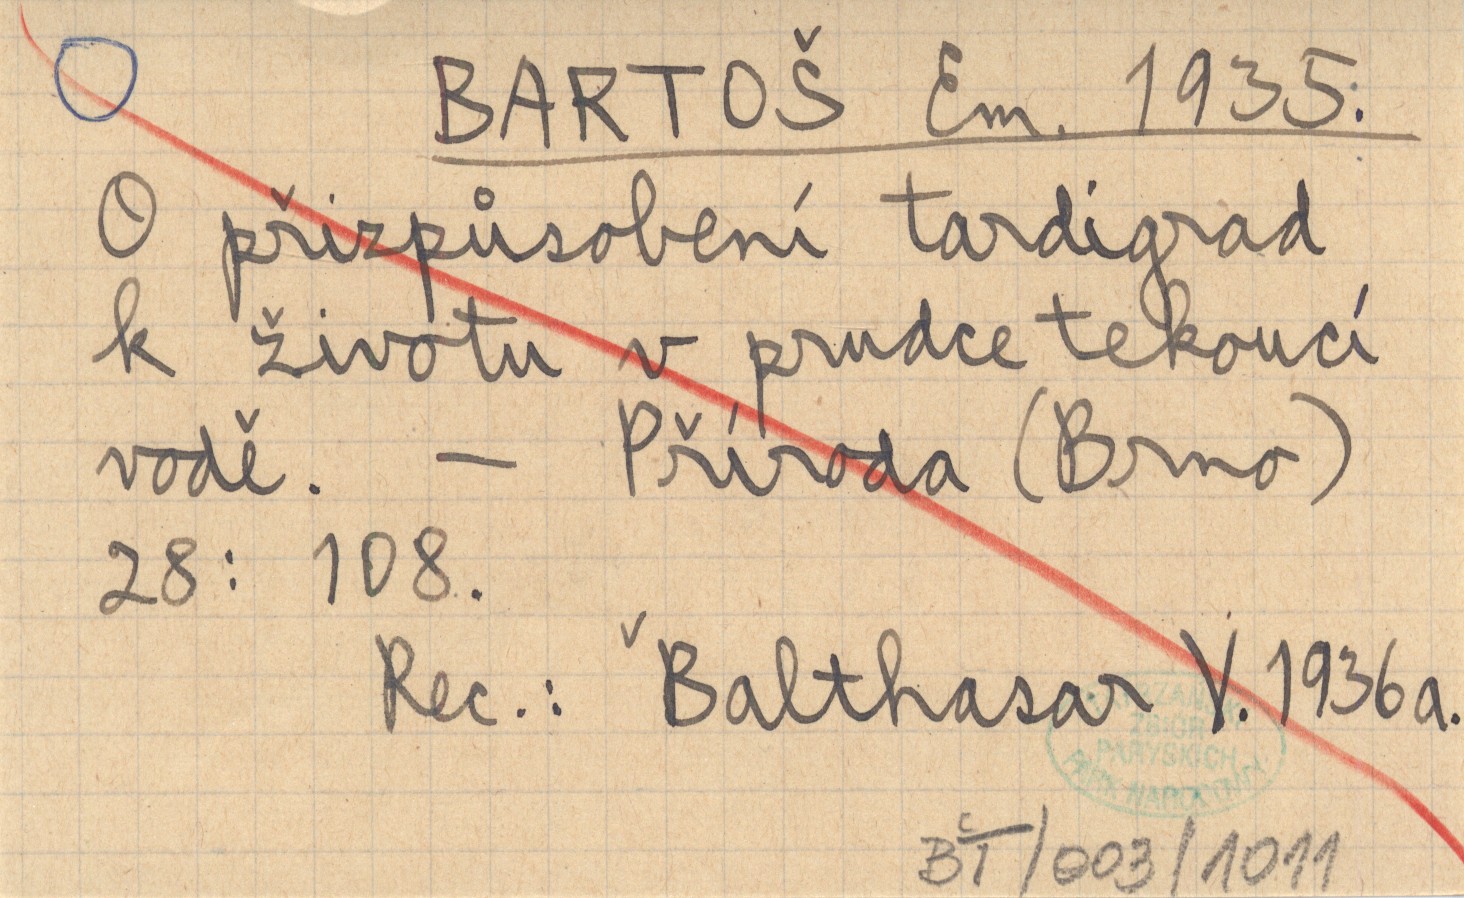 BARTOŠ Em. 1935:
O přizpůsobení tardigrad
k životu v prudce tekoucí
vodě. — Příroda (Brno)
28: 108.
Rec.: ˇBalthasar V. 1936a.
ZBIÓR
PARYSKICH
PARK NARODOWY
BT/003/1011